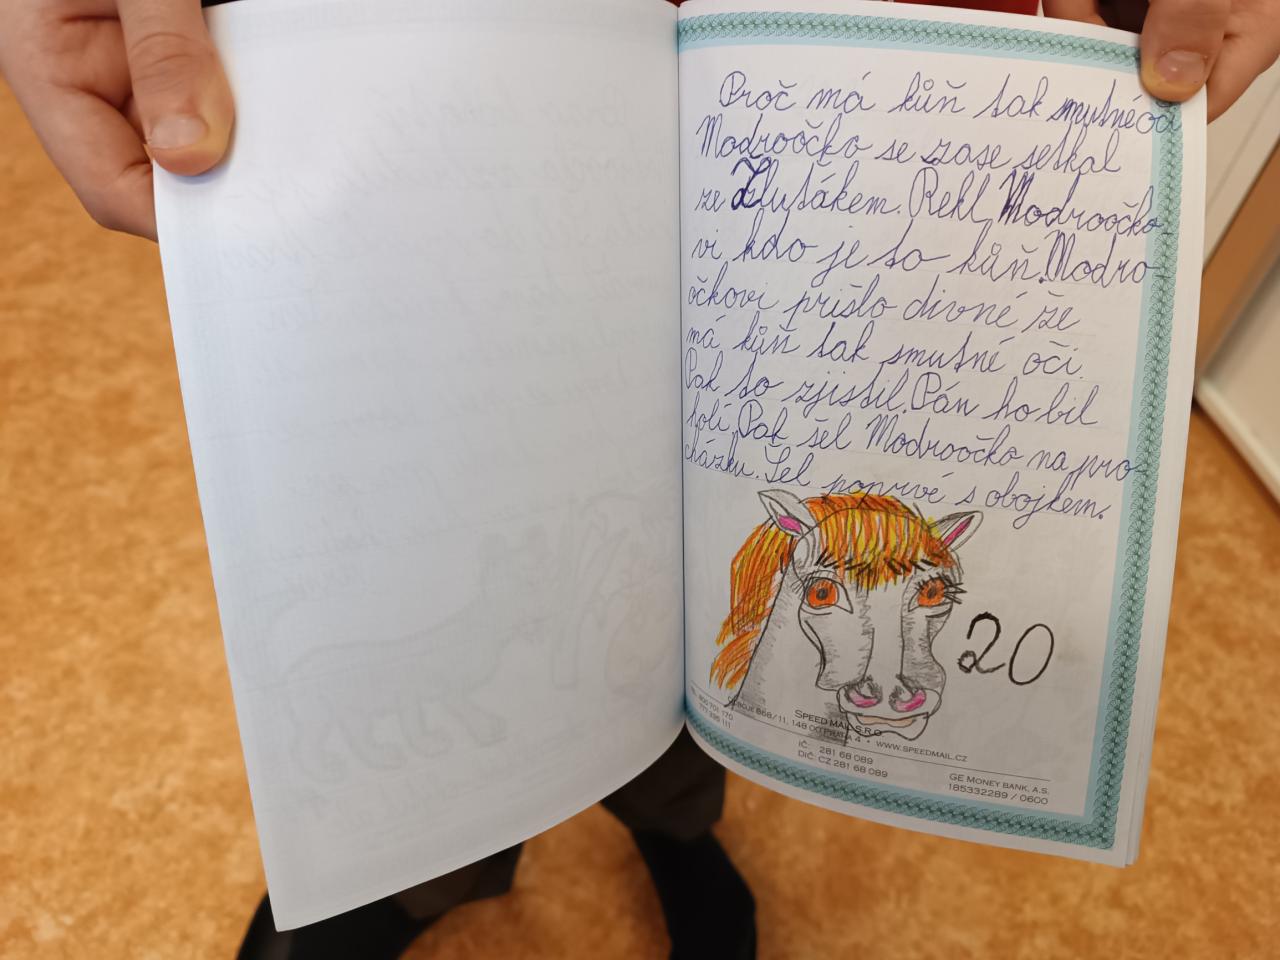 Proč má kůň tak smutné oči
Modroočko se zase setkal
ze Žlutákem. Rekl Modroočko-
vi kdo je to kůň. Modro-
očkovi prišlo divné že
má kůň tak smutné oči.
Pak to zjistil. Pán ho bil
holí. Pak šel Modroočko na pro-
cházku. Šel poprvé s obojkem.
20
SPEED MAIL S.R.O.
868/11, 148 00 PRAHA 4 • WWW.SPEEDMAIL.CZ
IČ: 281 68 089
DIČ: CZ 281 68 089
GE MONEY BANK, A.S.
185332289 / 0600